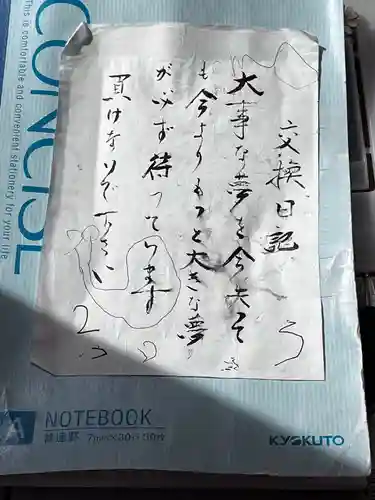 CONCISE
This is comfortable and convenient
stationery for your life.
交換日記
大事な夢を今失って
も今よりもっと大きな夢
が必ず待っています
負けないで下さい
A
NOTEBOOK
普通罫 7mm×30
KYOKUTO